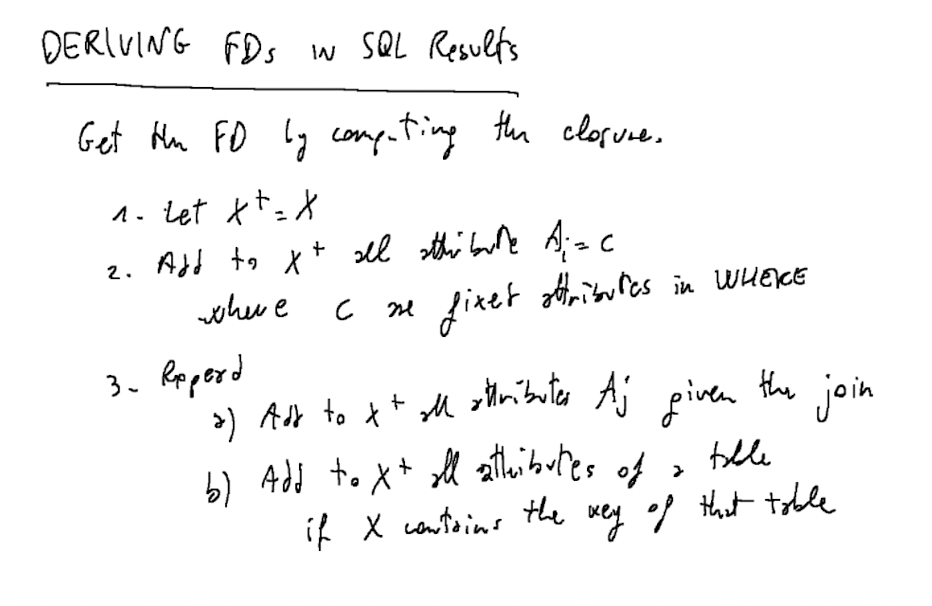 DERIVING FDs IN SQL Results
Get the FD by computing the closure.
1. Let X+ = X
2. Add to X+ all attribute Ai = C
where C are fixed attributes in WHERE
3. Repeat
a) Add to X+ all attributes Aj given the join
b) Add to X+ all attributes of a table
if X contains the key of that table